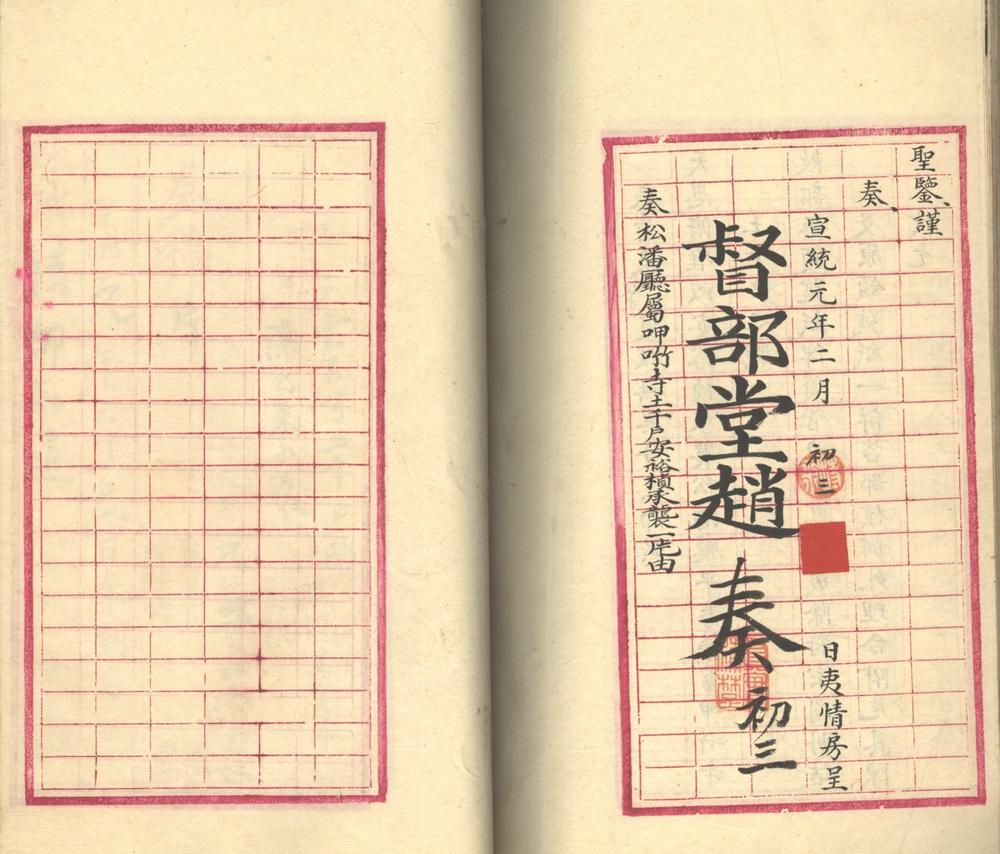 聖鑒謹
奏
宣統元年二月 初三 日夷情房呈
督部堂趙 奏 初三
奏松潘廳屬呷竹寺土千戶安裕楨承襲一片由